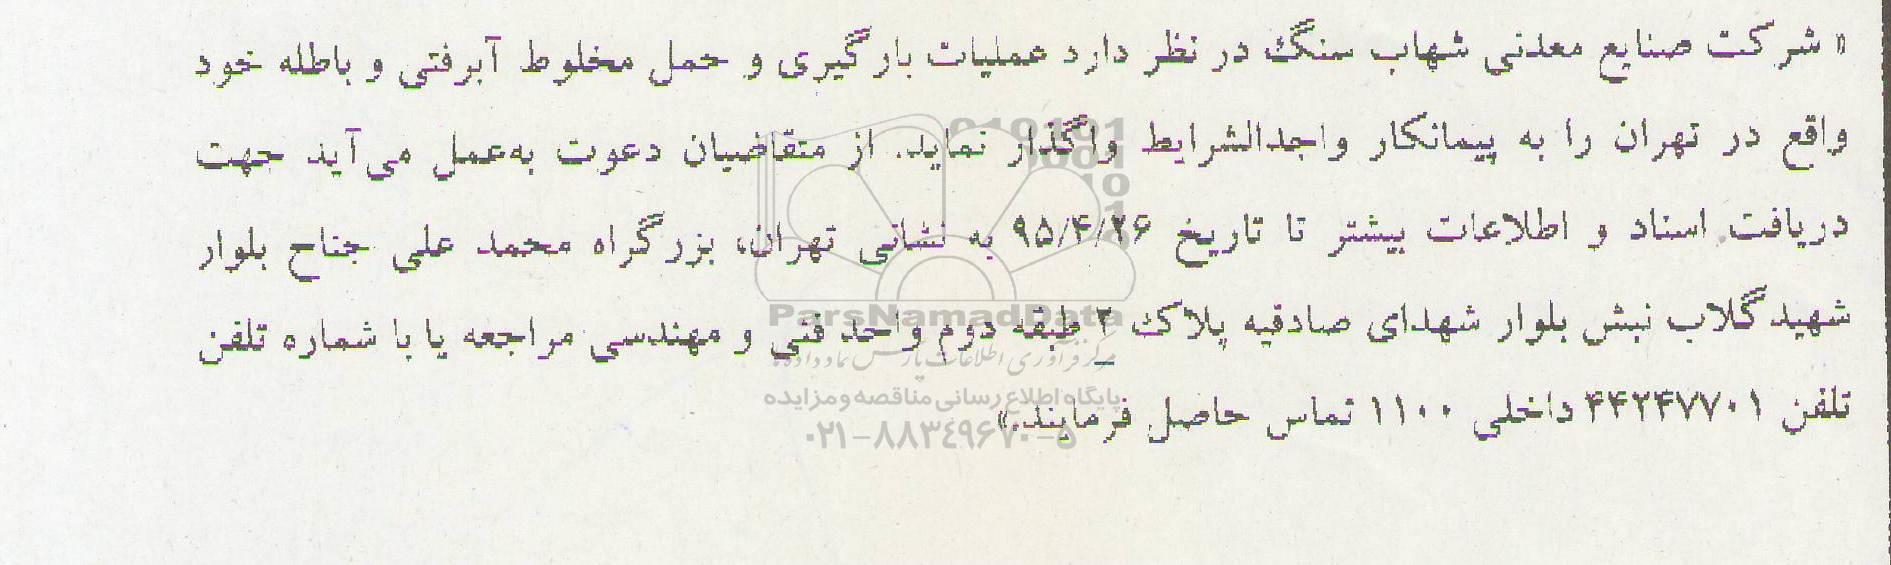 « شرکت صنایع معدنی شهاب سنگ در نظر دارد عملیات بارگیری و حمل مخلوط آبرفتی و باطله خود
واقع در تهران را به پیمانکار واجدالشرایط واگذار نماید. از متقاضیان دعوت به‌عمل می‌آید جهت
دریافت اسناد و اطلاعات بیشتر تا تاریخ ۹۵/۴/۲۶ به نشانی تهران، بزرگراه محمد علی جناح بلوار
شهید گلاب نبش بلوار شهدای صادقیه پلاک ۲ طبقه دوم واحد فنی و مهندسی مراجعه یا با شماره تلفن
تلفن ۴۴۲۴۷۷۰۱ داخلی ۱۱۰۰ تماس حاصل فرمایند.»
ParsNamadData
مرکز فرآوری اطلاعات پارس نماد داده‌ها
پایگاه اطلاع رسانی مناقصه و مزایده
۰۲۱-۸۸۳۴۹۶۷۰-۵